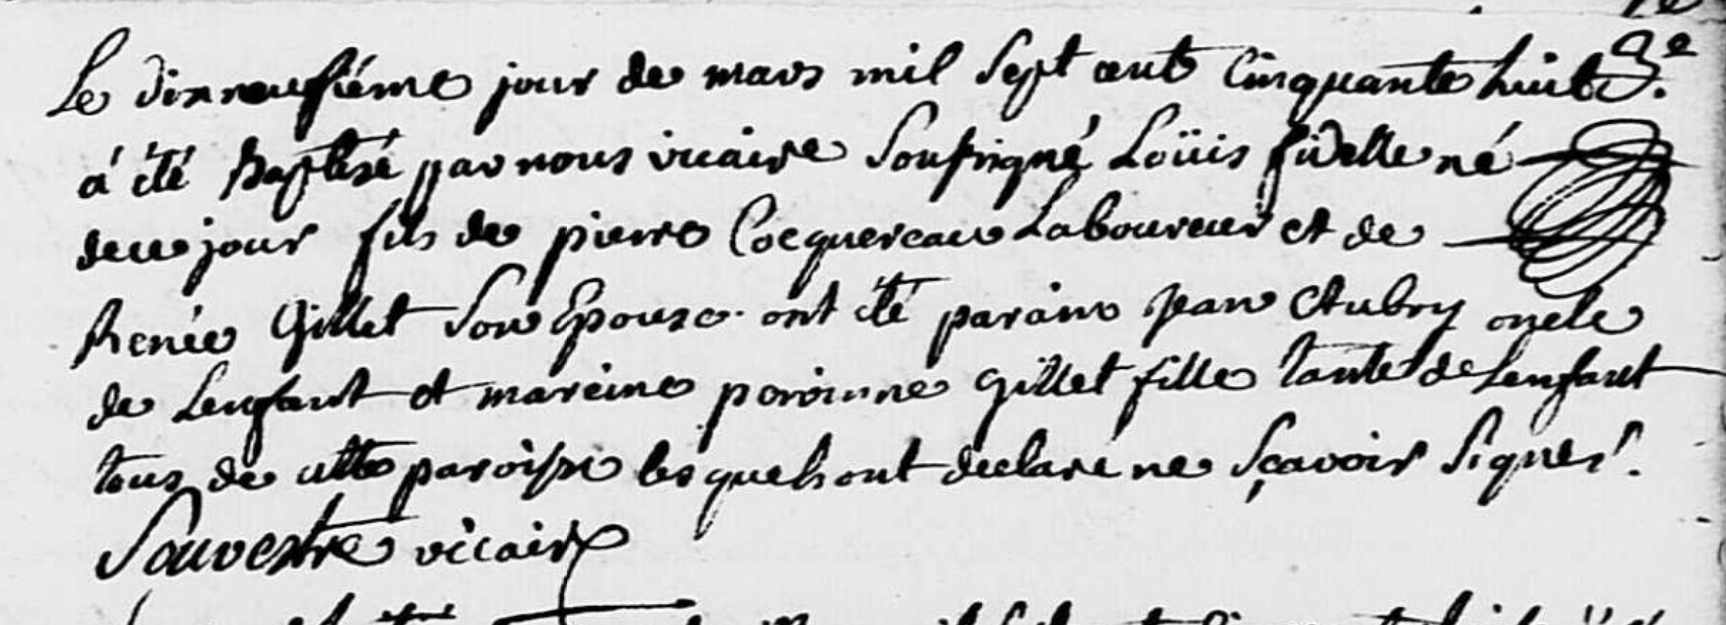 Le dixneufiéme jour de mars mil Sept cent Cinquante huit 3e.
á été Baptisé par nous vicaire Soussigné Loüis fidelle né
de ce jour fils de pierre Cocquereau Laboureur et de
Renée Gillet Son Epouse. ont été parain Jean Aubry oncle
de Lenfant et mareine peroinne Gillet fille tante de Lenfant
tous de cette paroisse lesquels ont declaré ne Sçavoir Signer.
Souvestre vicaire